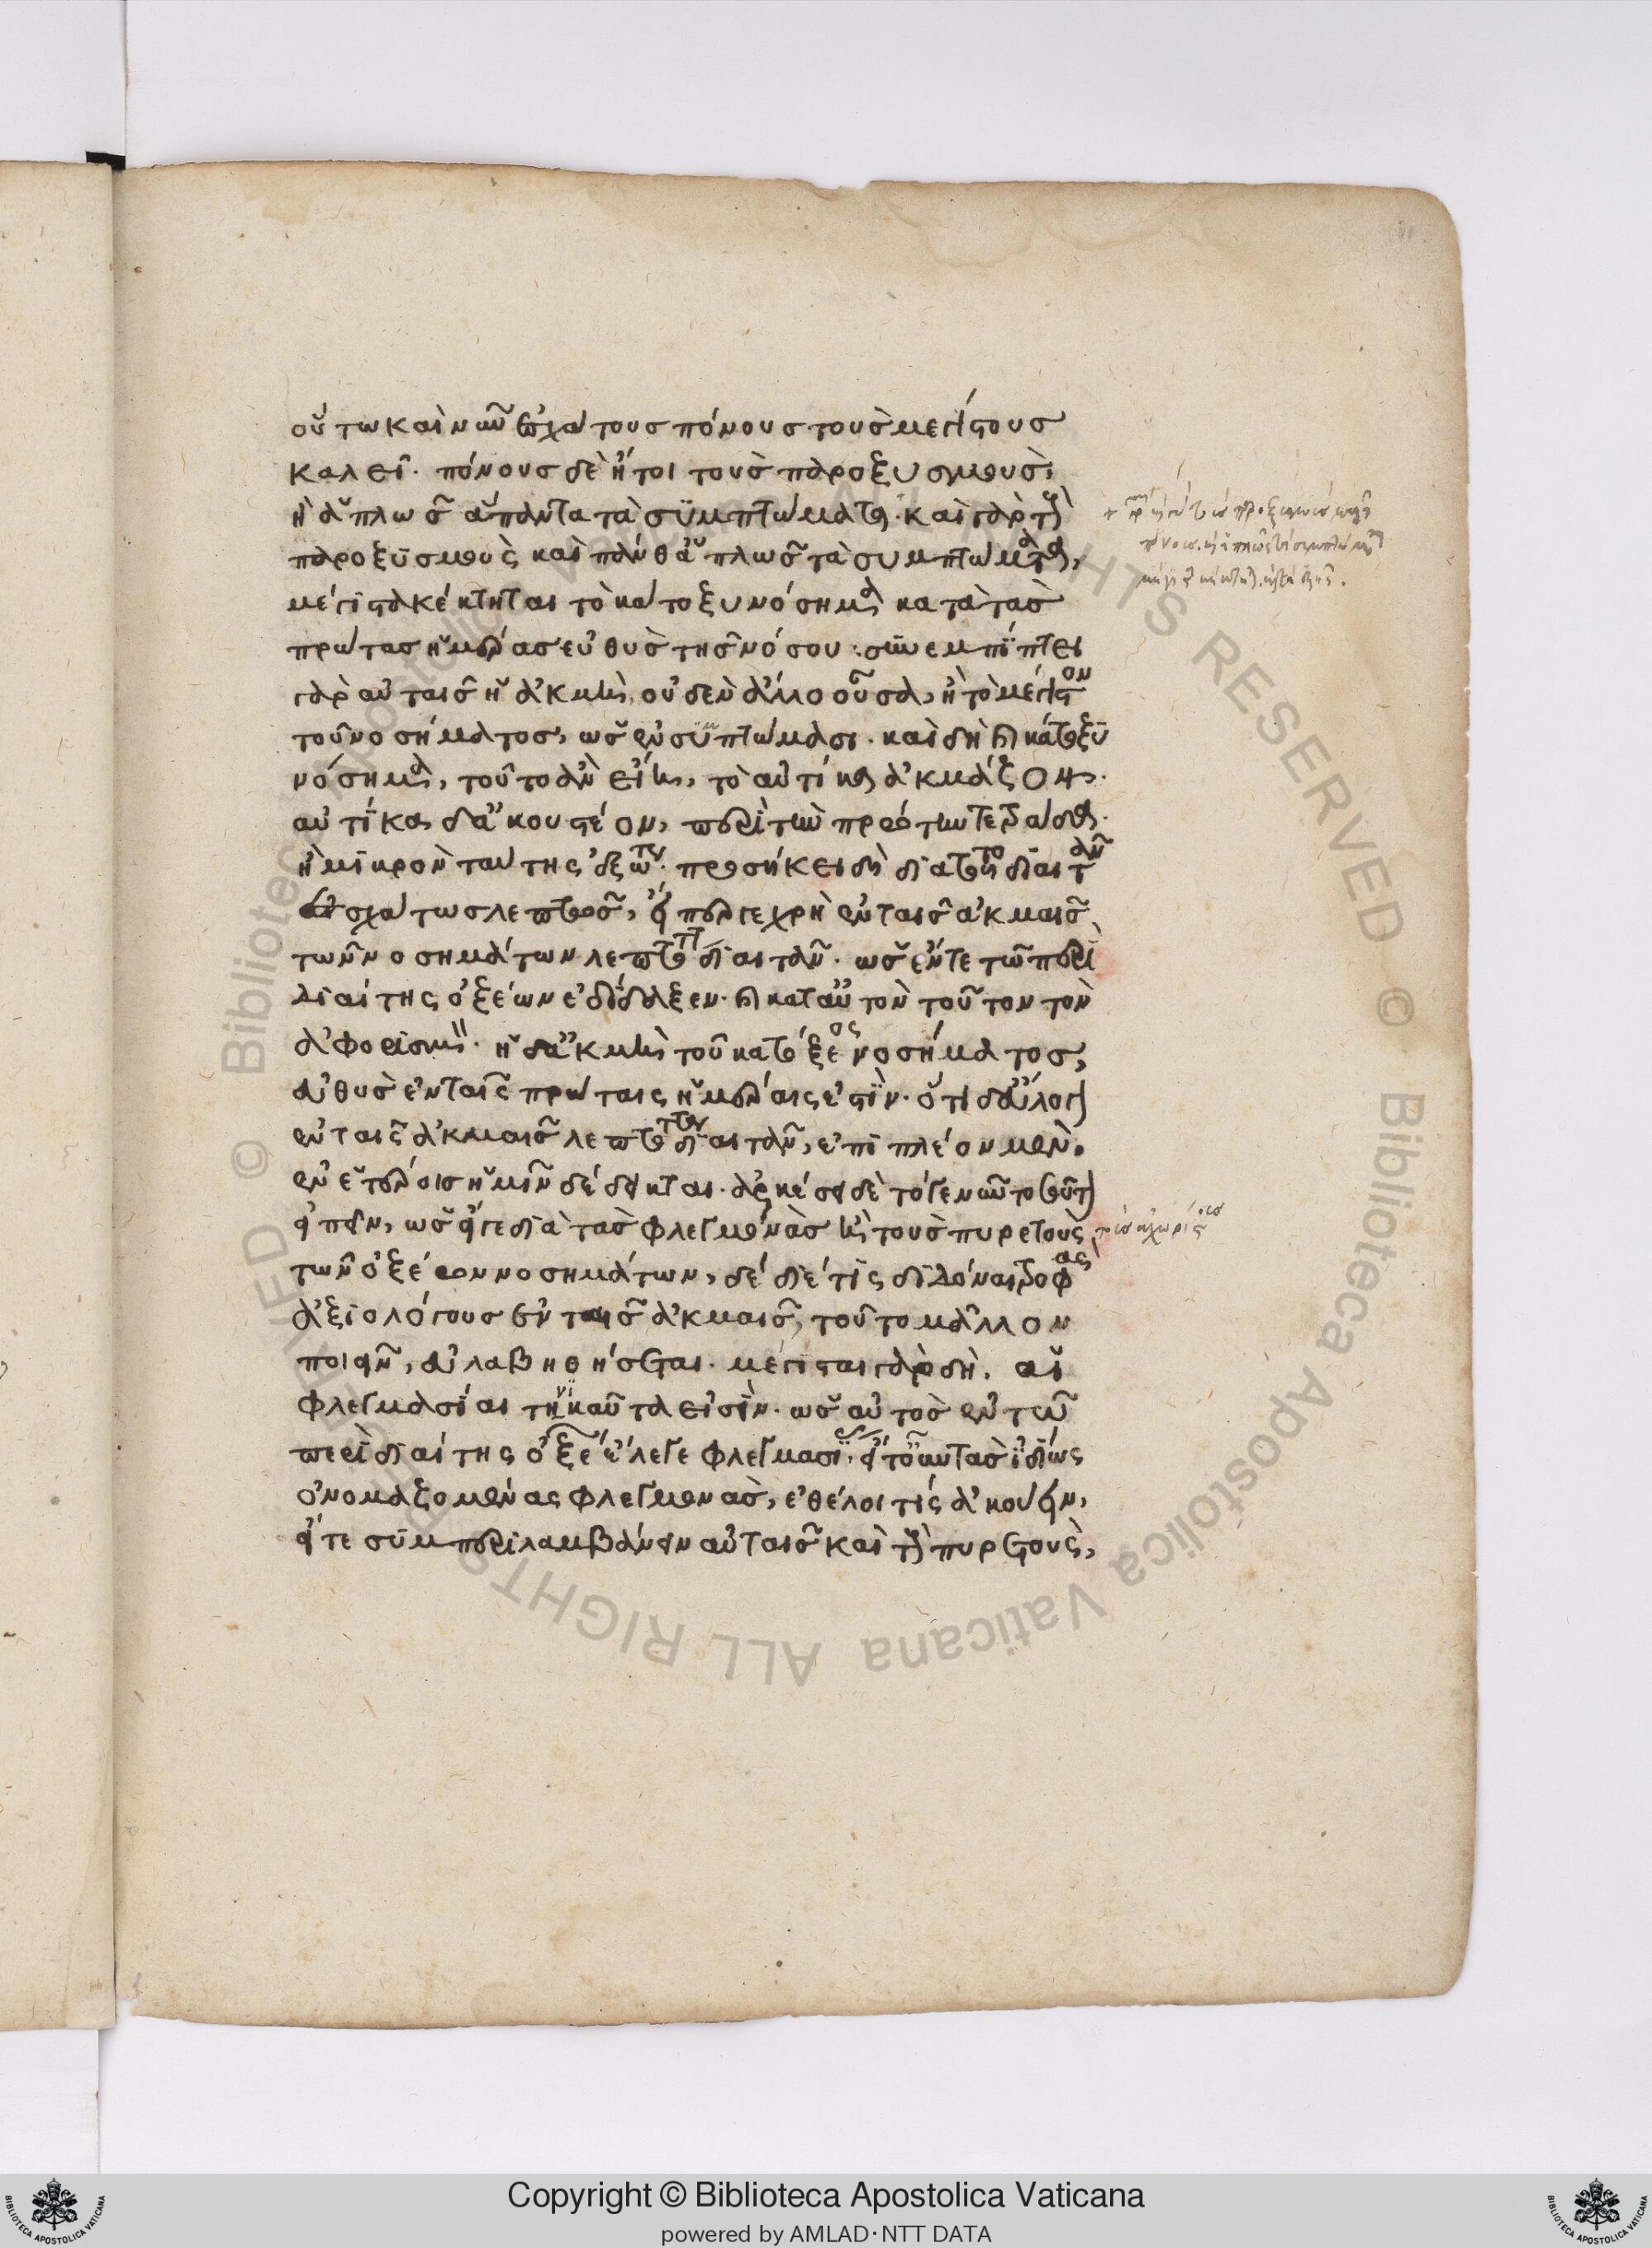 οὕτω καὶ νῦν ἐσχάτους πόνους τοὺς μεγίστους
καλεῖ. πόνους δὲ ἤτοι τοὺς παροξυσμοὺς,
ἢ ἁπλῶς ἅπαντα τὰ συμπτώματα. καὶ γὰρ τοὺς
παροξυσμοὺς καὶ πάνθ' ἁπλῶς τὰ συμπτώματα,
μέγιστα κέκτηται τὸ κάτοξυ νόσημα κατὰ τὰς
πρώτας ἡμέρας εὐθὺς τῆς νόσου: συνεμπίπτει
γὰρ αὐταῖς ἡ ἀκμὴ, οὐδὲν ἄλλο οὖσα, ἢ τὸ μέγιστον
τοῦ νοσήματος, ὡς ἐν συμπτώμασι. καὶ δὴ καὶ κάτοξυ
νόσημα, τοῦτο ἂν εἴη, τὸ αὐτίκα ἀκμάζον.
αὐτίκα δ' ἀκουστέον, περὶ τὴν πρώτην τετράδα.
ἢ μικρὸν ταύτης ἐξωτέρω. προσήκει δὴ διὰ τοῦτο διαιτᾶν
ἐσχάτως λεπτῶς, εἴπερ γε χρὴ ἐν ταῖς ἀκμαῖς
τῶν νοσημάτων λεπτότατα διαιτᾶν. ὡς ἔν τε τῶ περὶ
διαίτης ὀξέων ἐδίδαξεν. καὶ κατ' αὐτὸν τοῦτον τὸν
ἀφορισμόν. ἡ δ' ἀκμὴ τοῦ κατοξέος νοσήματος,
εὐθὺς ἐν ταῖς πρώταις ἡμέραις ἐστίν. ὅτι δ' εὔλογον
ἐν ταῖς ἀκμαῖς λεπτότατα διαιτᾶν, ἐπὶ πλέον μὲν.
ἐν ἑτέροις ἡμῖν δέδεικται. ἀρκέσει δὲ τό γε νῦν τοσοῦτον
εἰπεῖν, ὡς εἴγε διὰ τὰς φλεγμονὰς καὶ τοὺς πυρετοὺς
τῶν ὀξέων νοσημάτων, δέδιέ τις διδόναι τροφὰς
ἀξιολόγους ἐν ταῖς ἀκμαῖς, τοῦτο μᾶλλον
ποιεῖν, εὐλαβηθήσεται. μέγισται γὰρ δὴ. αἱ
φλεγμασίαι τηνικαῦτα εἰσίν. ὡς αὐτὸς ἐν τῶ
περὶ διαίτης ὀξέων ἔλεγε φλεγμασίας, εἴτ' οὖν τὰς ἰδίως
ὀνομαζομένας φλεγμονὰς, ἐθέλοι τίς ἀκούειν,
εἴτε συμπεριλαμβάνειν αὐταῖς καὶ τοὺς πυρετοὺς,